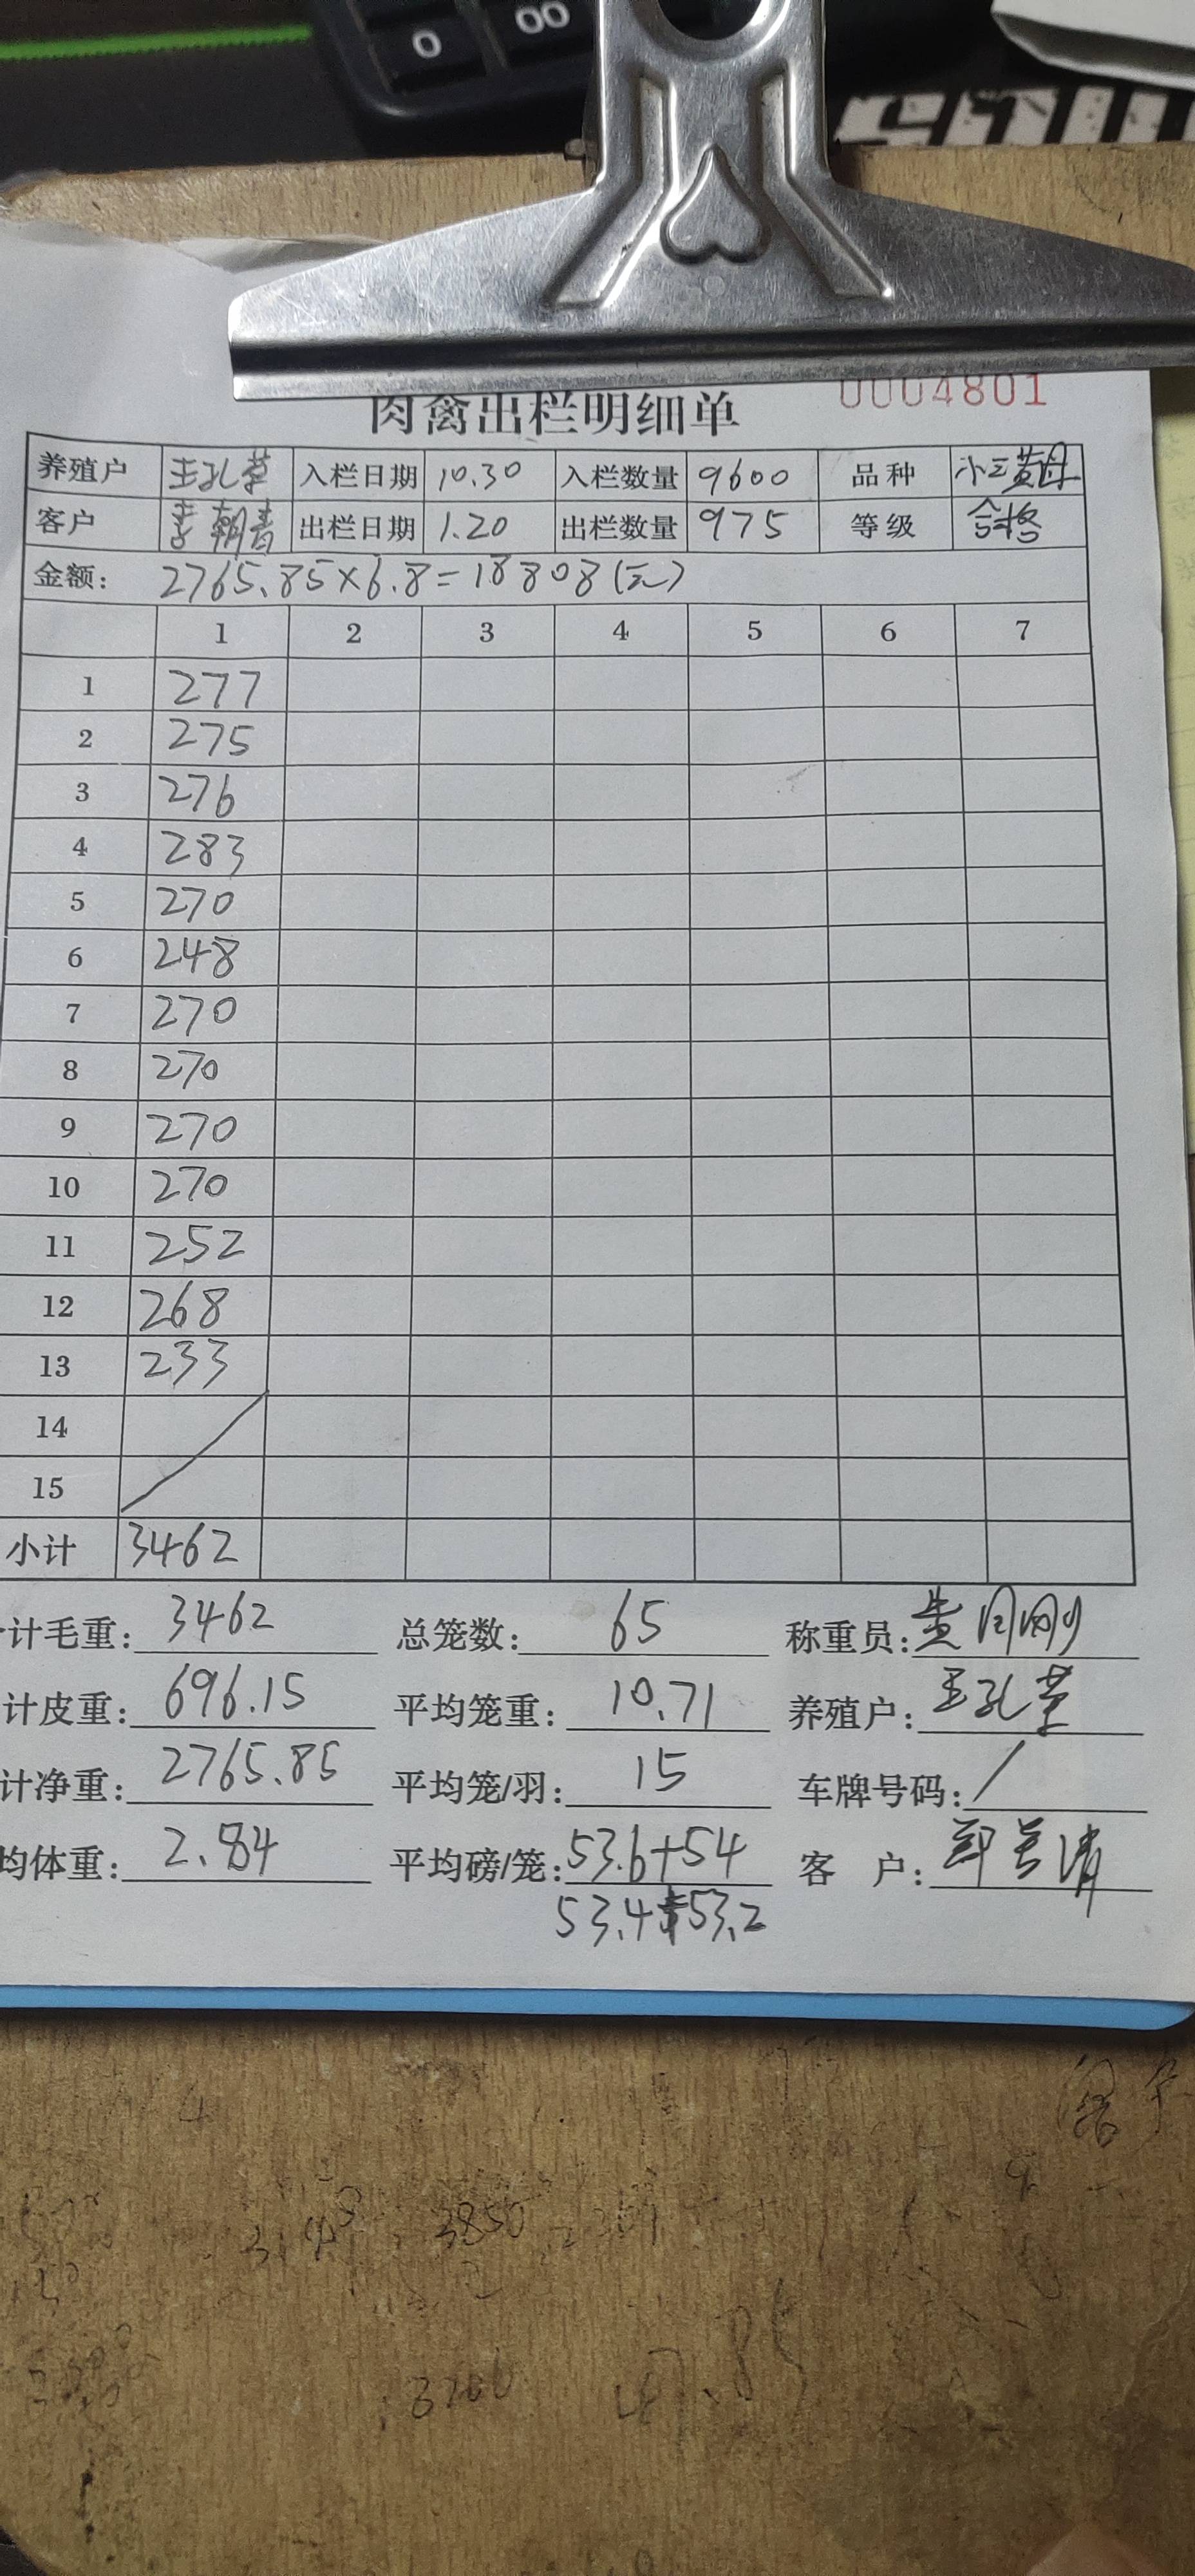 0
00
0004801
肉禽出栏明细单
养殖户 王孔草 入栏日期 10.30 入栏数量 9600 品种 小三黄母
客户 李朝青 出栏日期 1.20 出栏数量 975 等级 合格
金额: 2765.85×6.8=18808(元)
1 2 3 4 5 6 7
1 277
2 275
3 276
4 283
5 270
6 248
7 270
8 270
9 270
10 270
11 252
12 268
13 233
14
15
小计 3462
计毛重: 3462 总笼数: 65 称重员:
计皮重: 696.15 平均笼重: 10.71 养殖户: 王孔草
计净重: 2765.85 平均笼/羽: 15 车牌号码: /
均体重: 2.84 平均磅/笼: 53.6+54 客户:
53.4+53.2